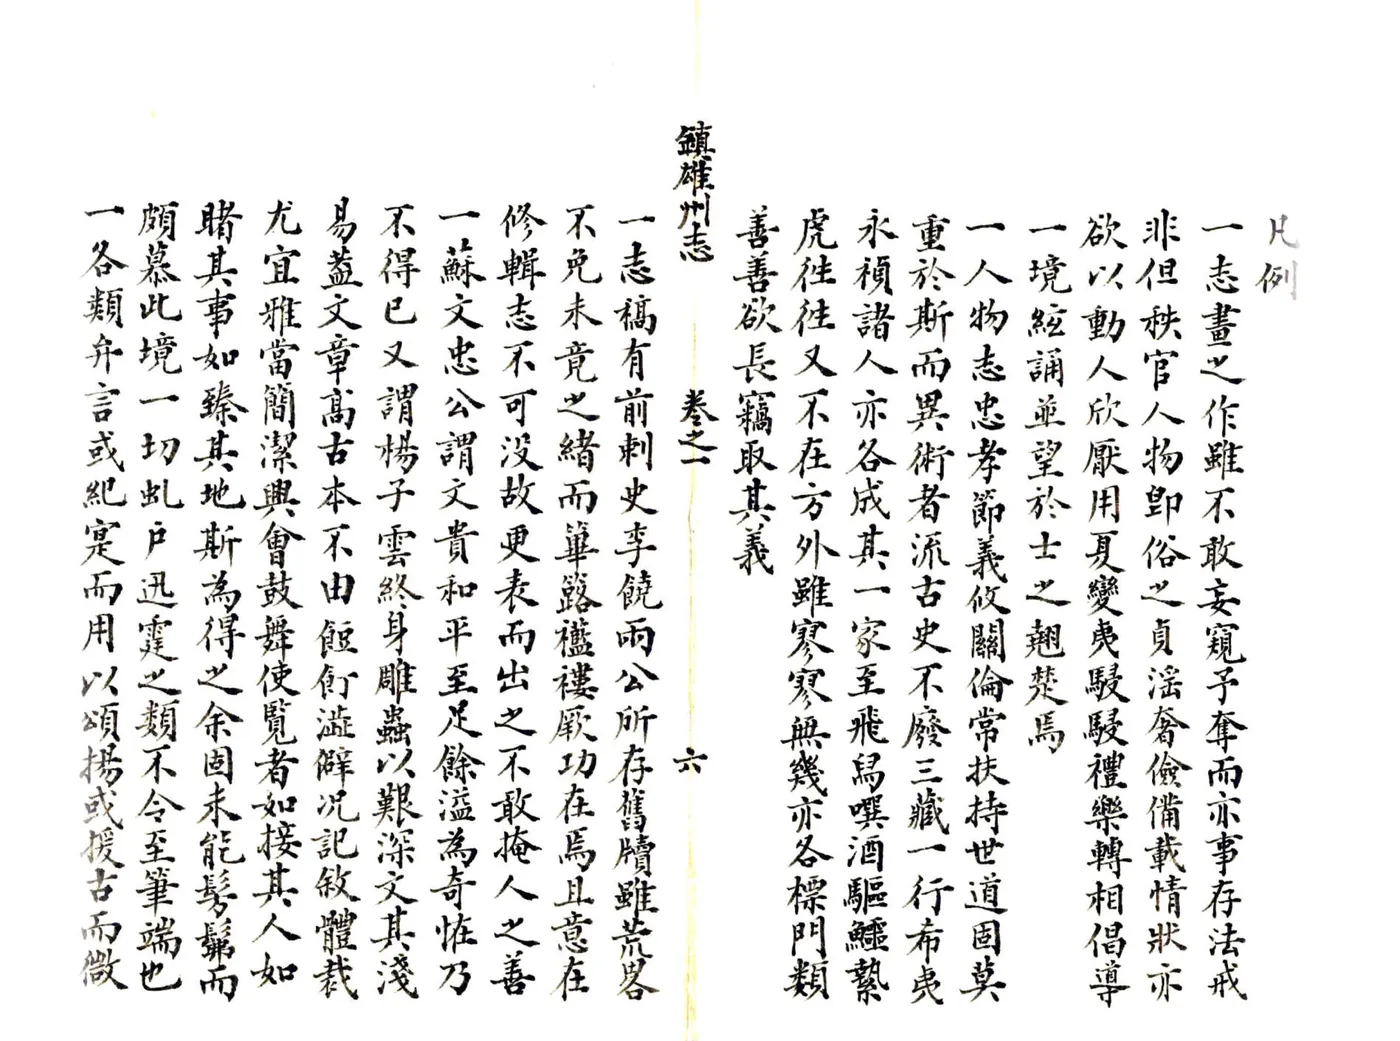 凡例
一志畫之作雖不敢妄窺予奪而亦事存法戒
非但秩官人物卽俗之貞淫奢儉備載情狀亦
欲以動人欣厭用夏變夷駸駸禮樂轉相倡導
一境絃誦並望於士之翹楚焉
一人物志忠孝節義攸關倫常扶持世道固莫
重於斯而異術者流古史不廢三藏一行希夷
永禎諸人亦各成其一家至飛舄噀酒驅鱷縶
虎徃徃又不在方外雖寥寥無幾亦各標門類
善善欲長竊取其義
鎮雄州志
卷之一
六
一志稿有前刺史李饒雨公所存舊牘雖荒畧
不免未竟之緒而篳簬襤褸厥功在焉且意在
修輯志不可没故更表而出之不敢掩人之善
一蘇文忠公謂文貴和平至足餘溢為奇恠乃
不得已又謂楊子雲終身雕蟲以艱深文其淺
易葢文章高古本不由飣澁僻况記敘體裁
尤宜雅當簡潔興會鼓舞使覧者如接其人如
睹其事如臻其地斯為得之余固未能髣髴而
頗慕此境一切虬戶迅霆之類不令至筆端也
一各類弁言或紀寔而用以頌揚或援古而微